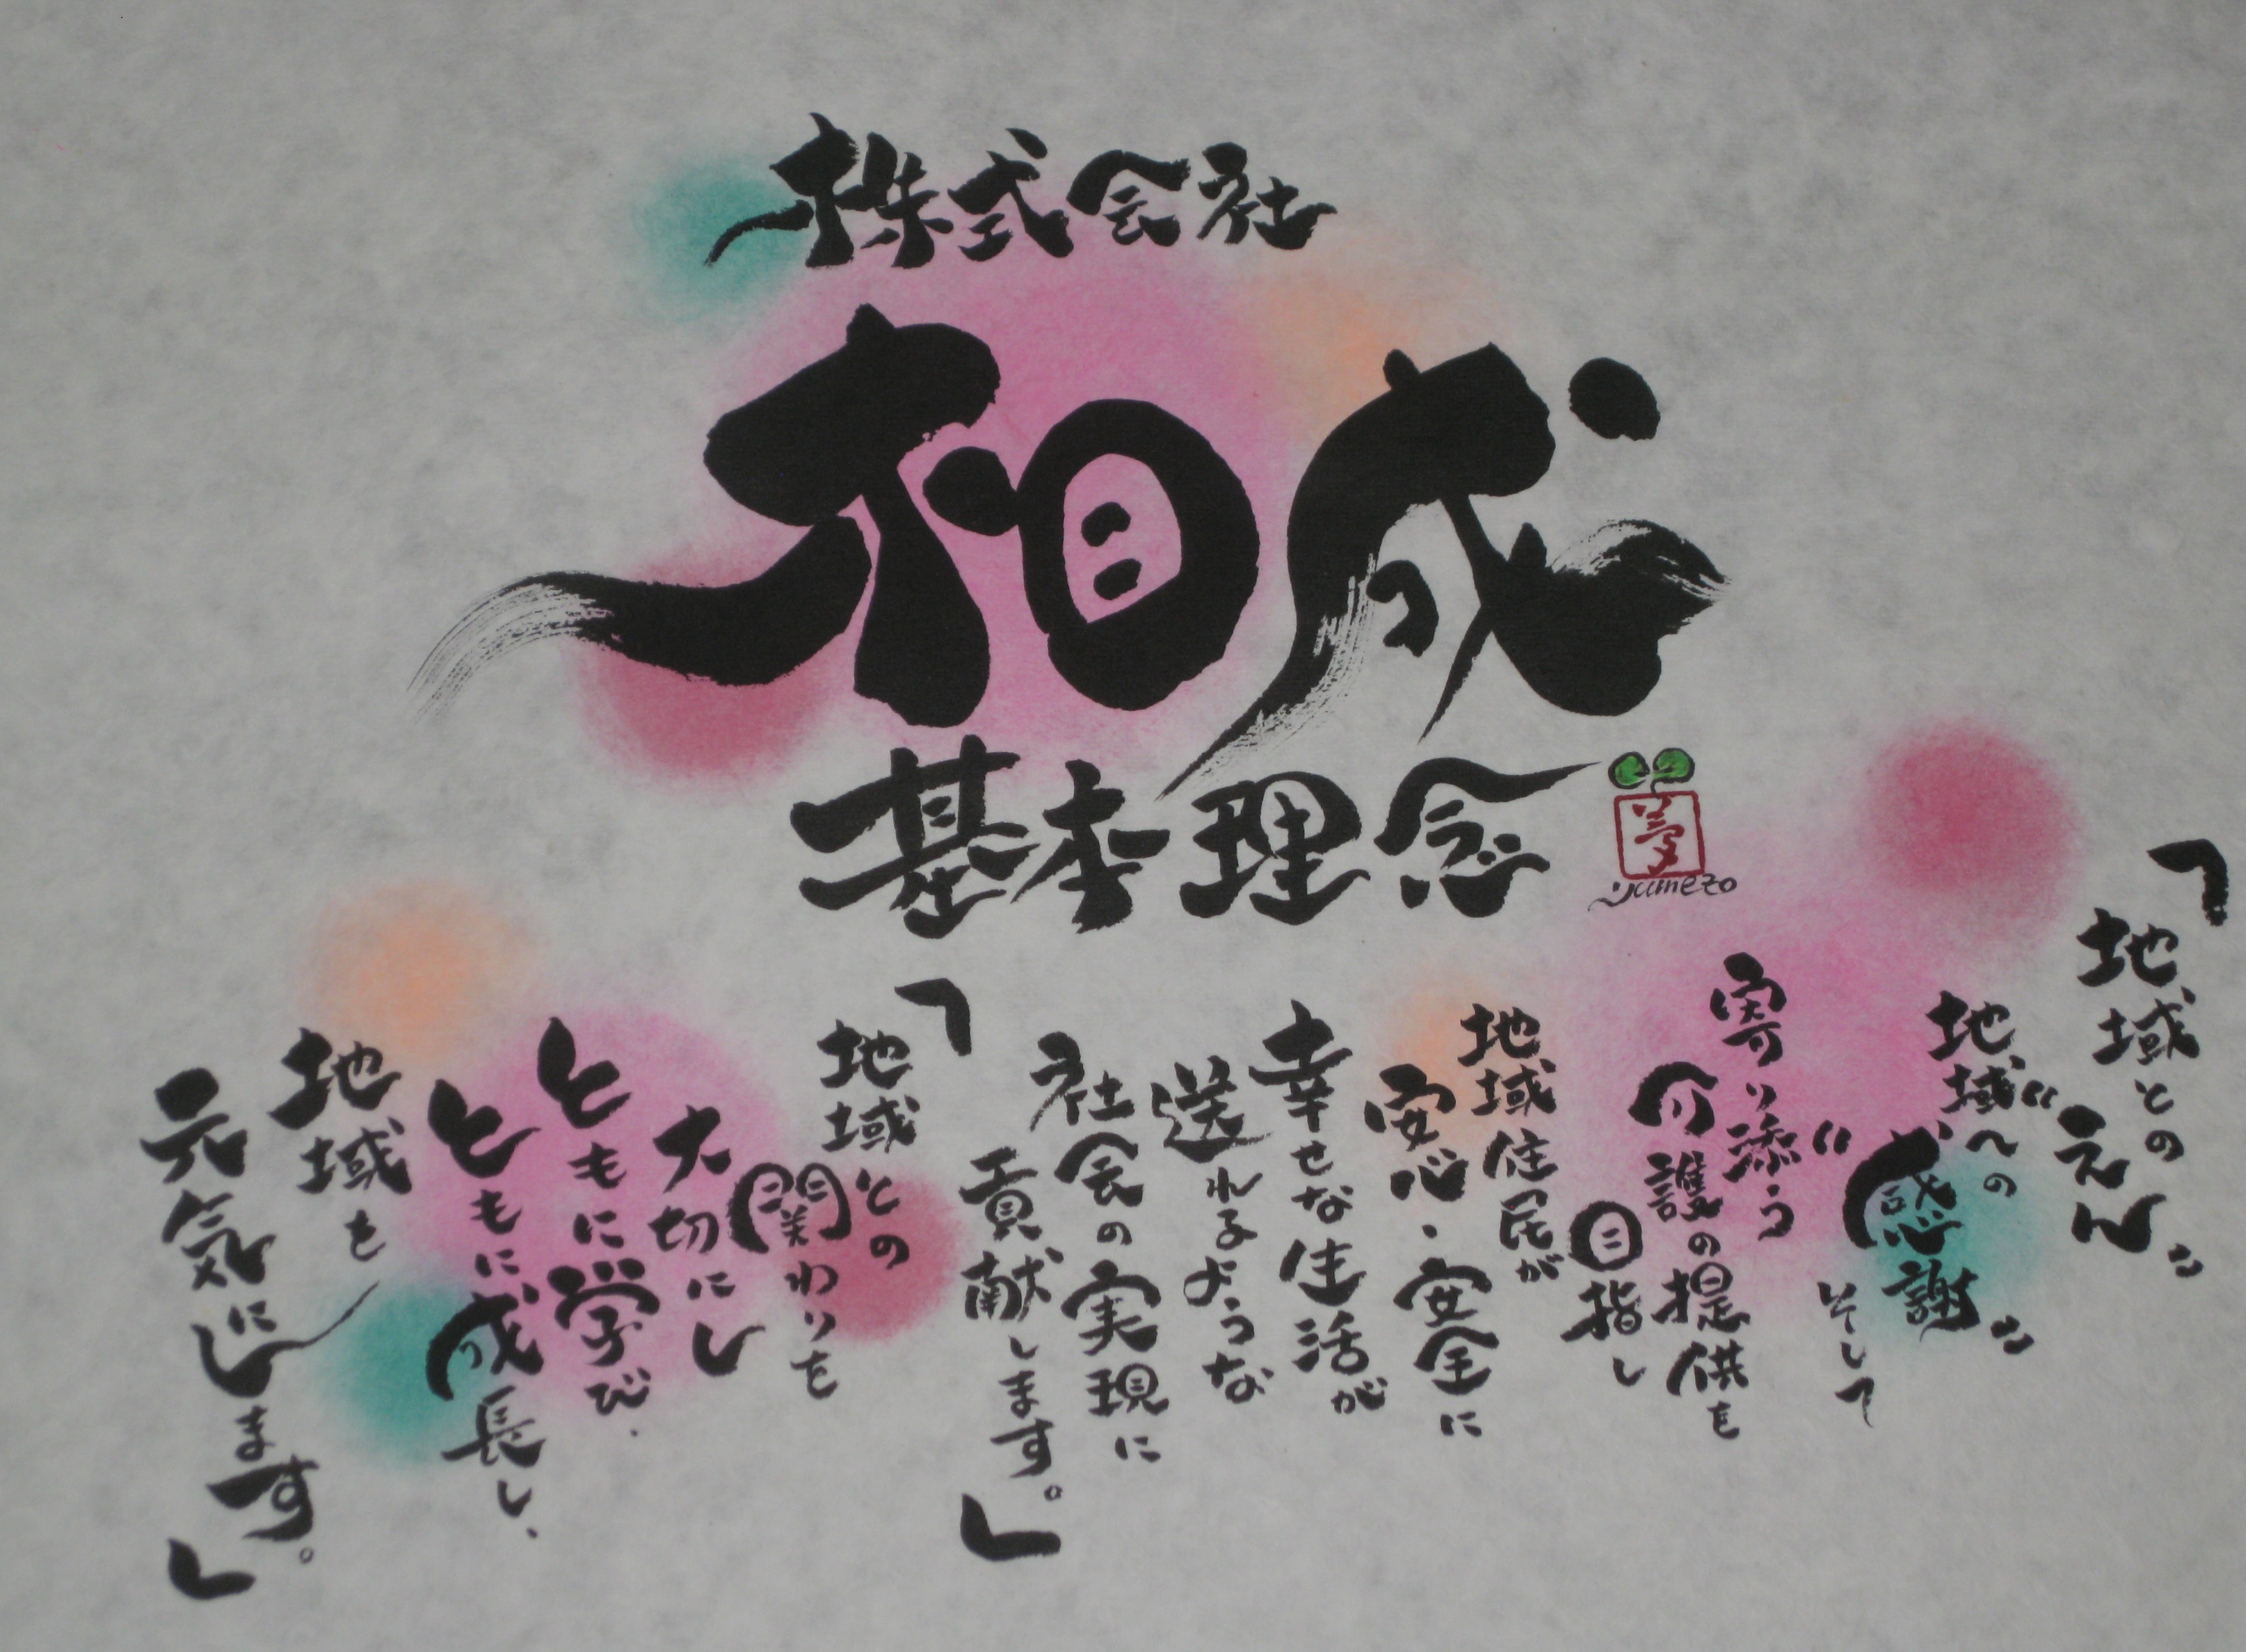 株式会社
相成
基本理念
夢
yumezo
「地域との
“えん”
地域への
“感謝”
そして
寄り添う
介護の提供を
目指し
地域住民が
安心・安全に
幸せな生活が
送れるような
社会の実現に
貢献します。」
「地域との
関わりを
大切にし
ともに学び、
ともに成長し、
地域を
元気にします。」